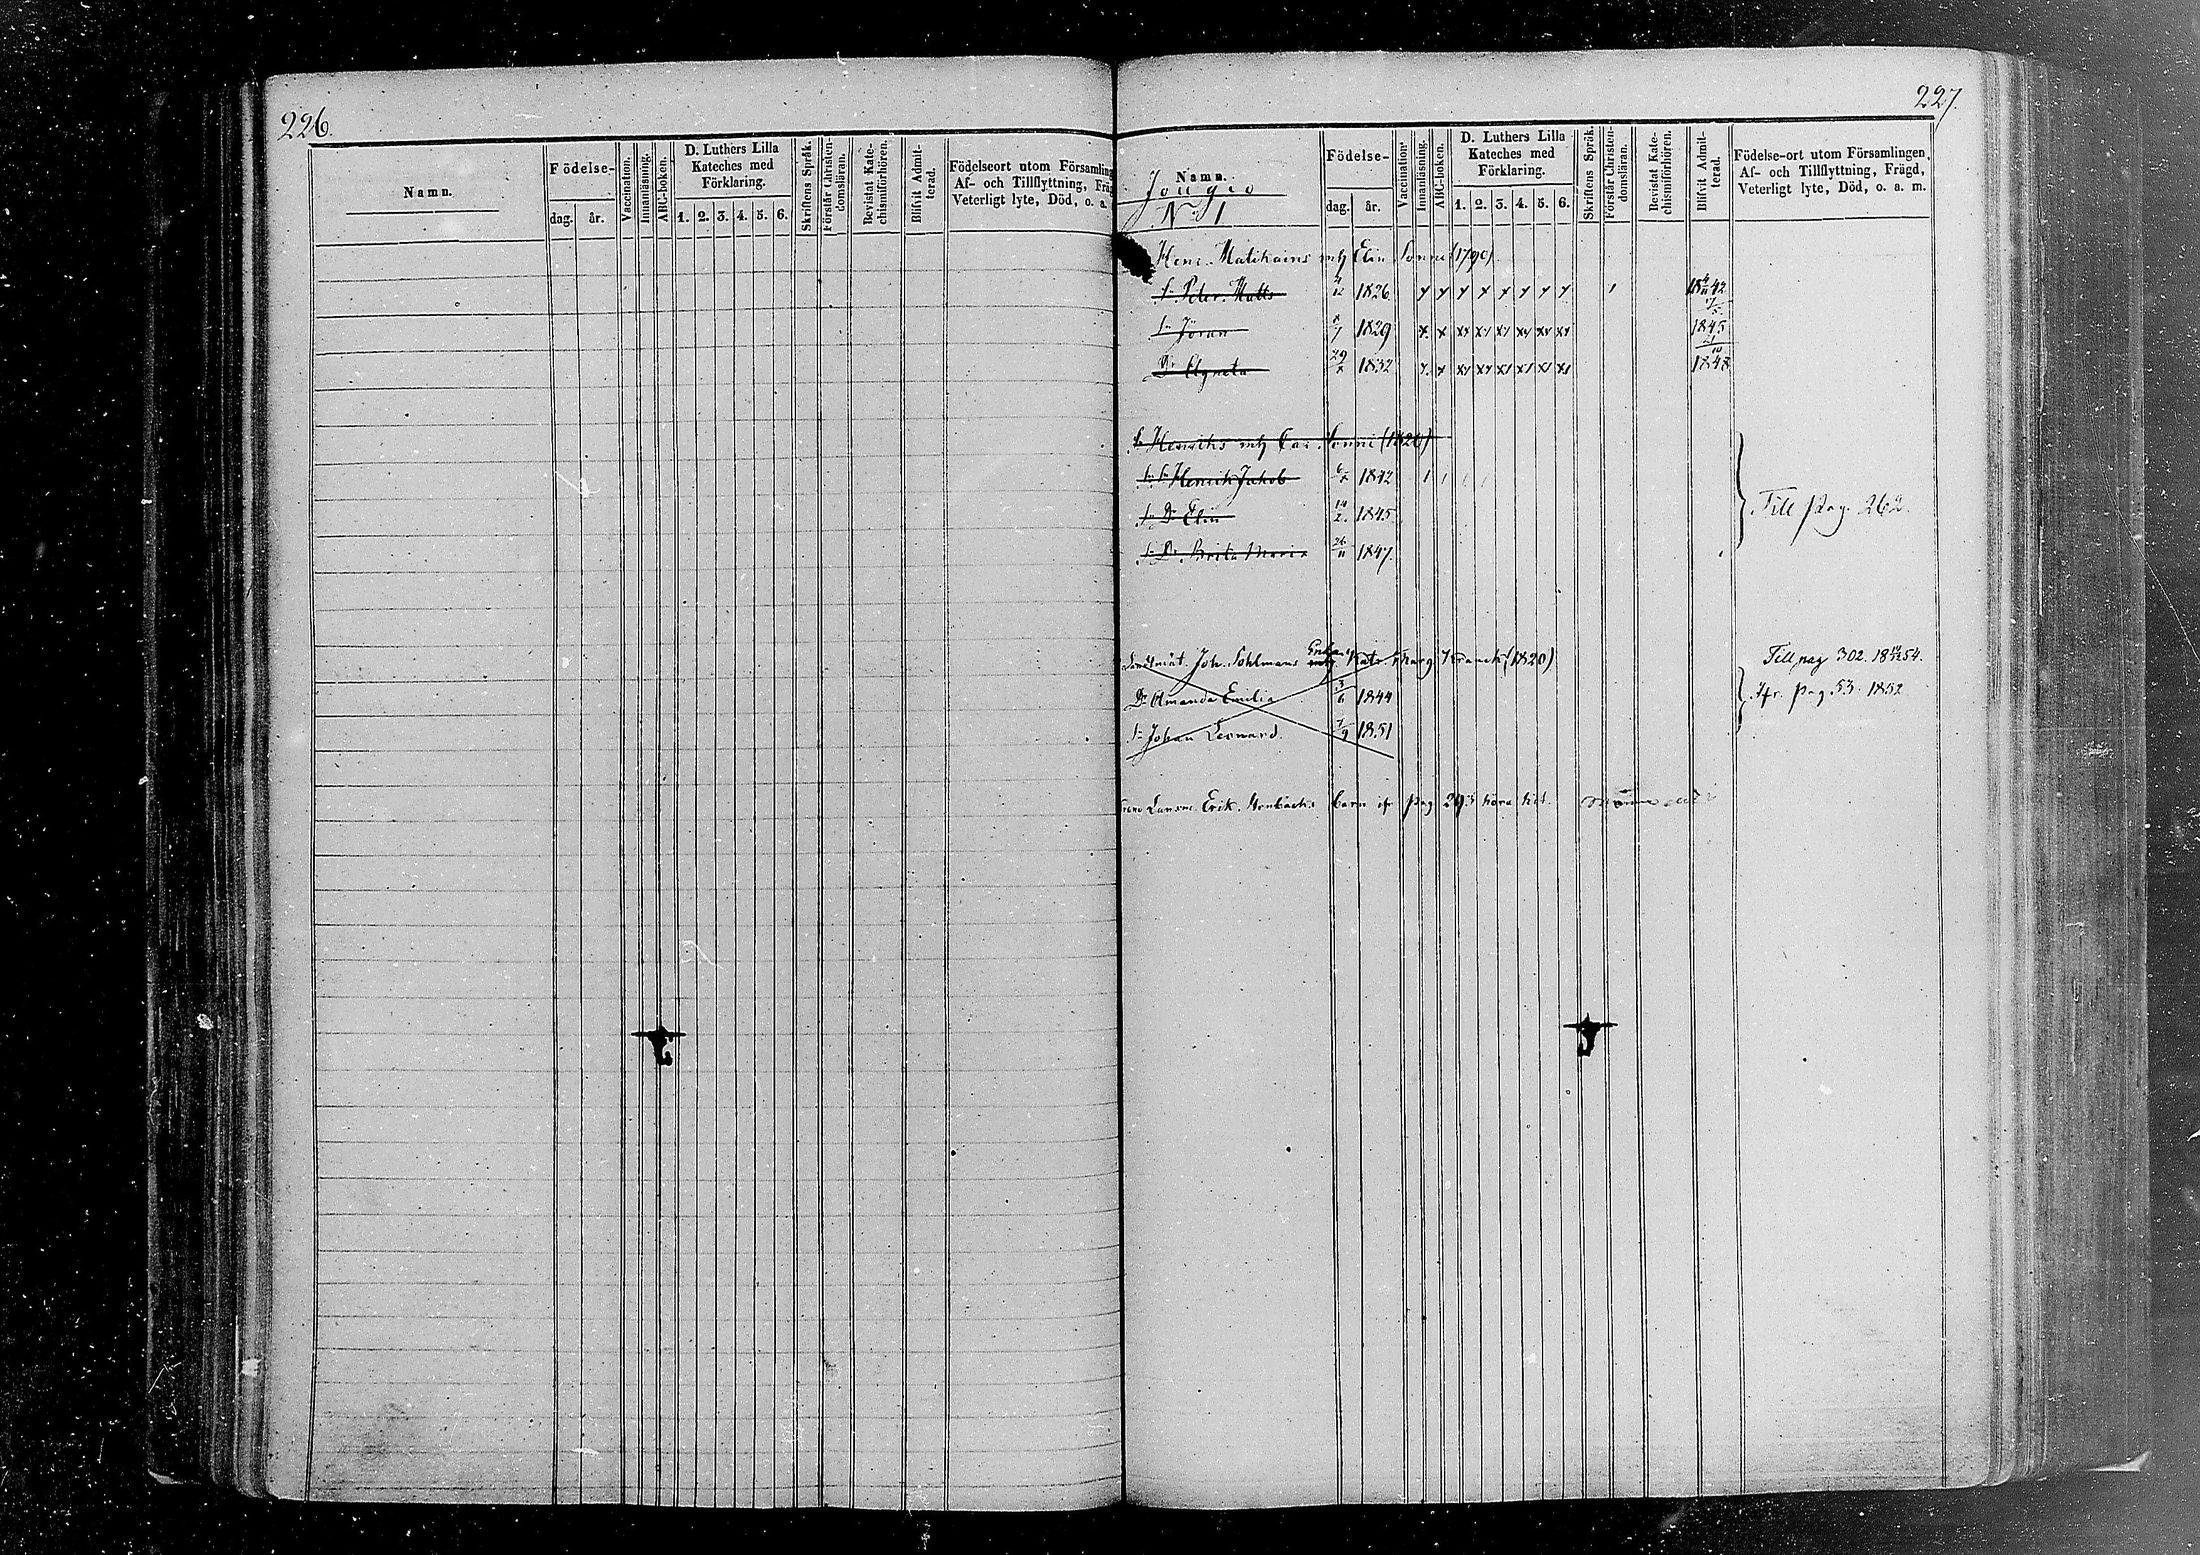 226.
Namn.
Födelse-
dag. år.
Vaccination.
Innanläsning.
ABC-boken.
D. Luthers Lilla
Kateches med
Förklaring.
1. 2. 3. 4. 5. 6.
Skriftens Språk.
Förstår Christen-
domsläran.
Bevistat Kate-
chismiförhören.
Blifvit Admit-
terad.
Födelseort utom Församling
Af- och Tillflyttning, Fräg
Veterligt lyte, Död, o. a.
227.
Namn.
Jougio
N. 1
Födelse-
dag. år.
Vaccination.
Innanläsning.
ABC-boken.
D. Luthers Lilla
Kateches med
Förklaring.
1. 2. 3. 4. 5. 6.
Skriftens Språk.
Förstår Christen-
domsläran.
Bevistat Kate-
chismiförhören.
Blifvit Admit-
terad.
Födelse-ort utom Församlingen,
Af- och Tillflyttning, Frägd,
Veterligt lyte, Död, o. a. m.
Henr. Matikains Elin Sonni (1790)
Sn Peter Matts 1826 1842
Sn Jöran 1829 1845
Dr Agneta 29 1832 21/10 1848
Sn Henrichs Car. Sonni (1820)
Henrik Jakob 6 1842
Dr Elin 1845
Dr Brita Maria 26/11 1847.
Till pag. 262.
Joh. Sohlmans Enka Katr. Marg. Kranck (1820)
Till pag 302. 1854.
Dr Amanda Emilia 3/6 1844
fr. pag. 53. 1852
Sn Johan Leonard 7/9 1851
Lansm. Erik barn pag 293 höra hit.